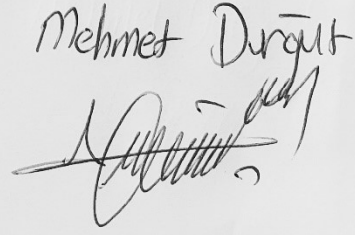 Mehmet Durgut